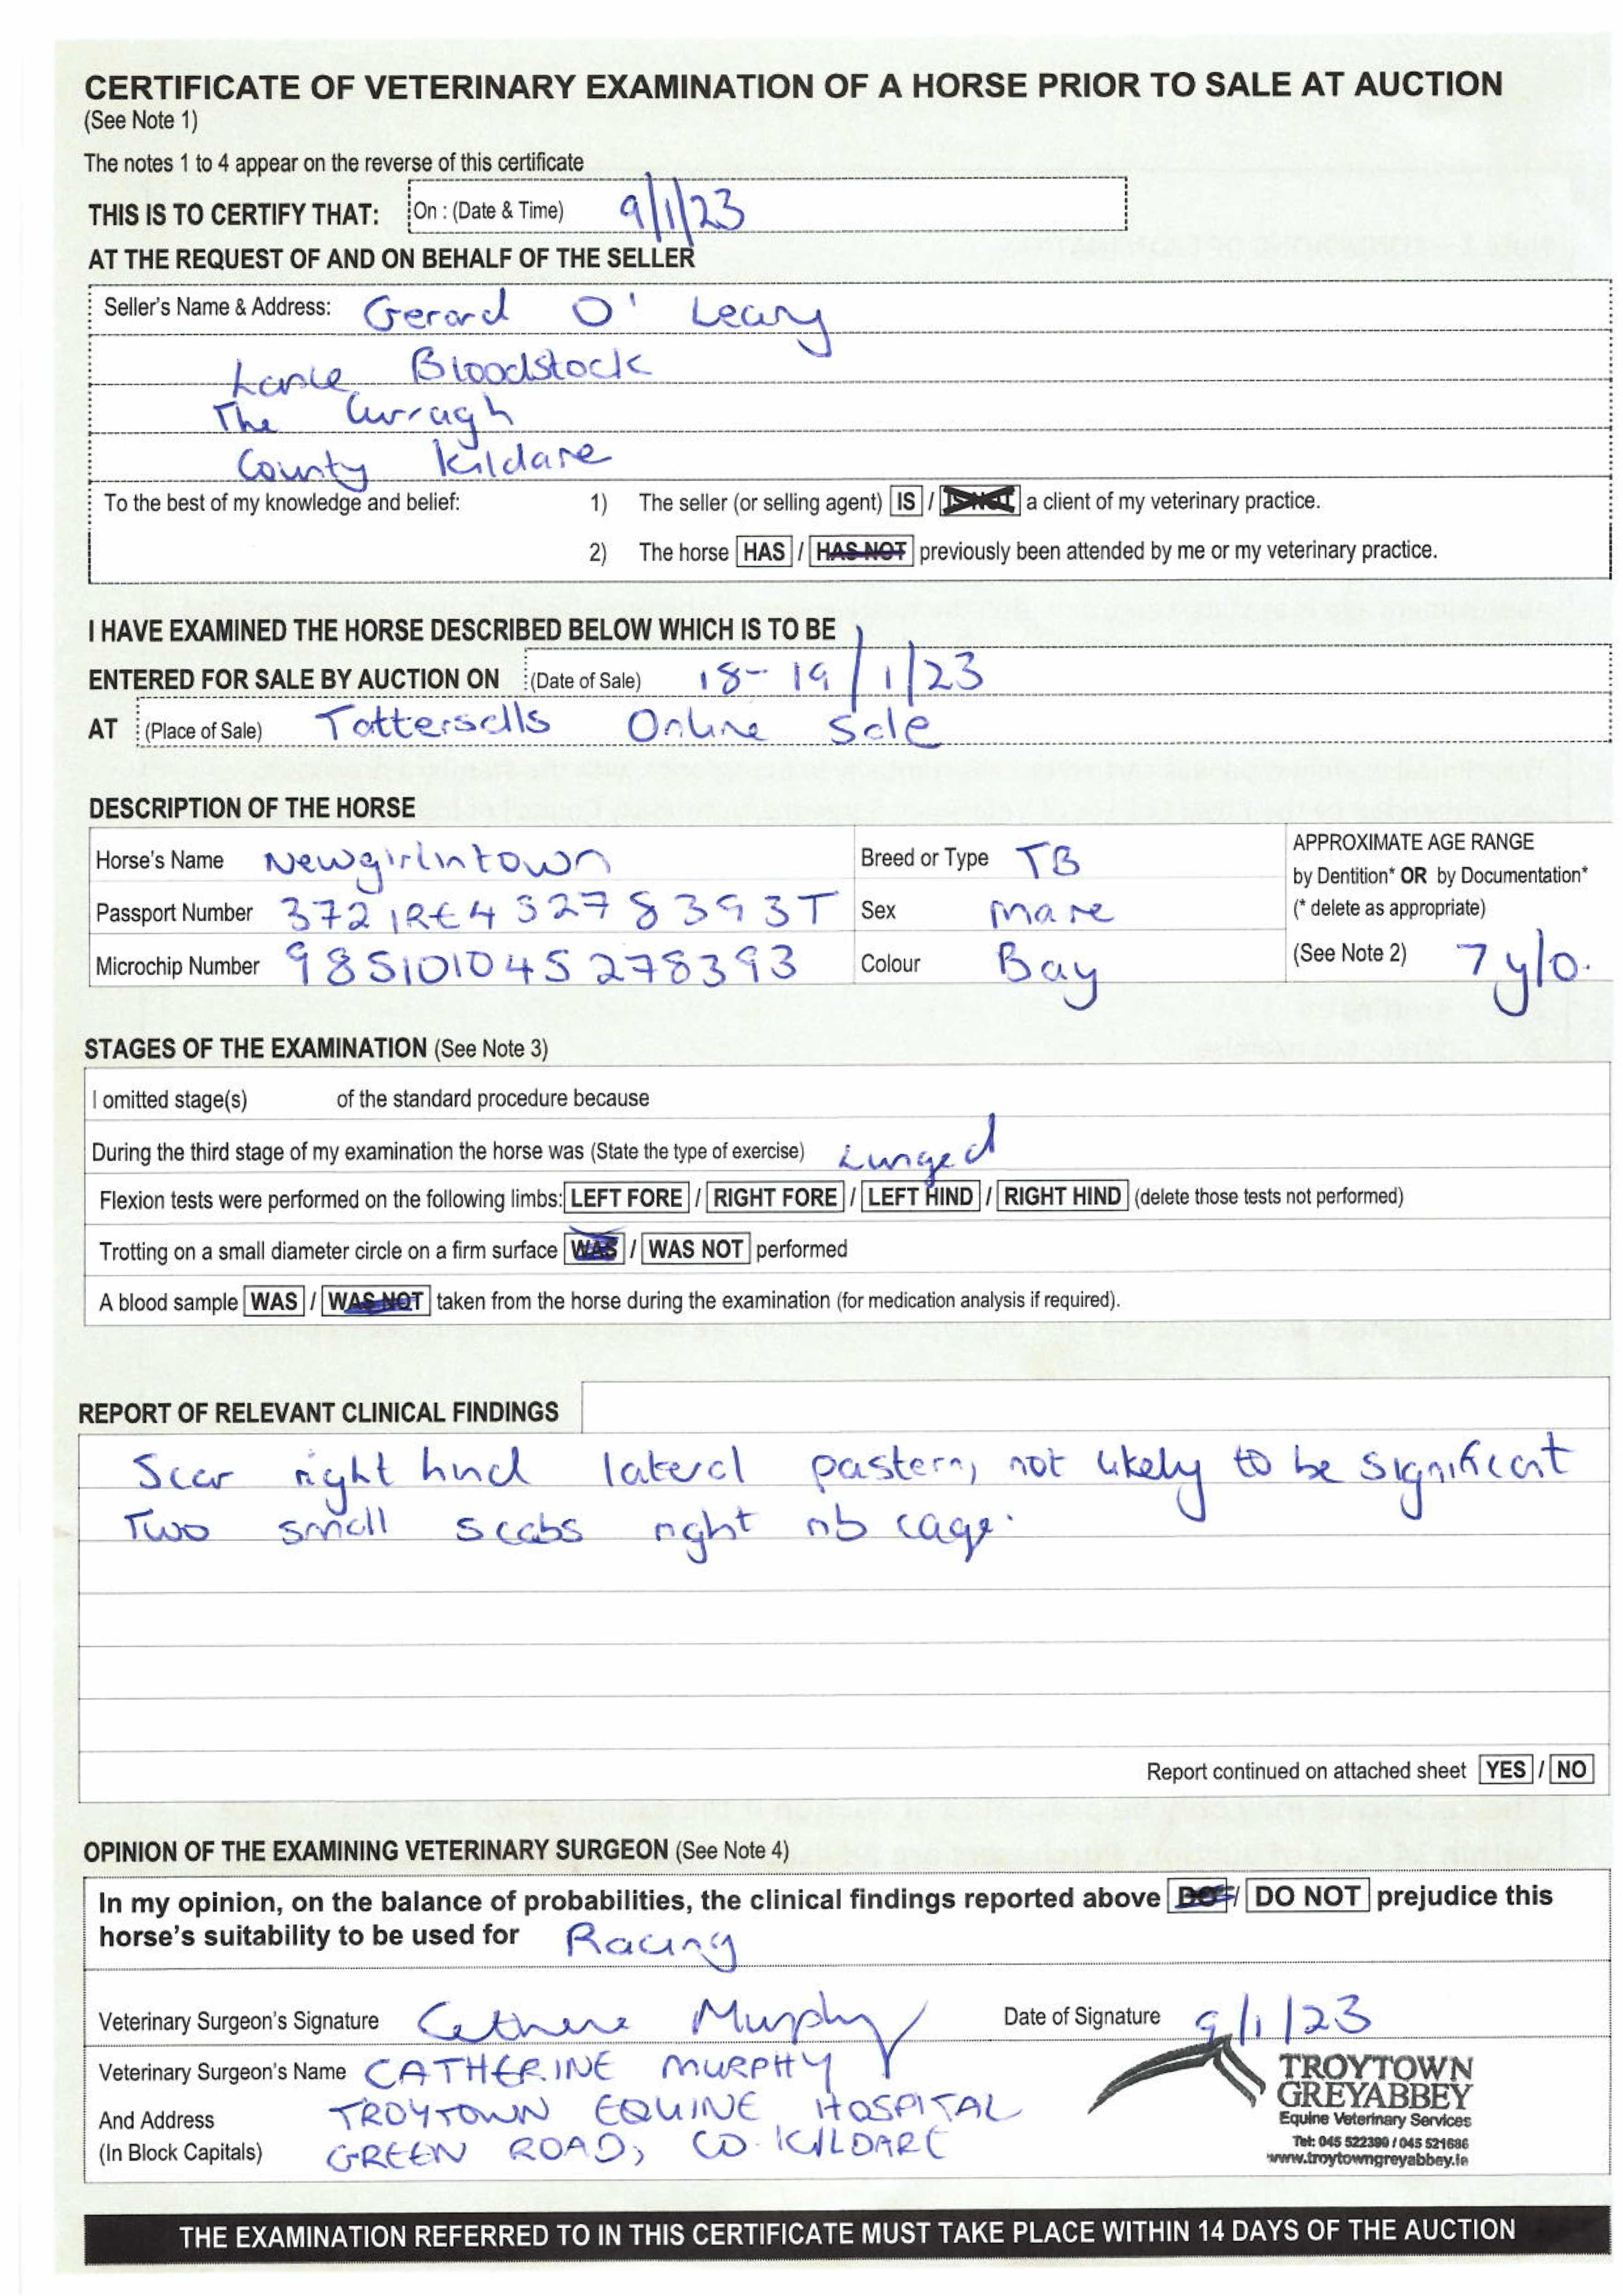 CERTIFICATE OF VETERINARY EXAMINATION OF A HORSE PRIOR TO SALE AT AUCTION
(See Note 1)
The notes 1 to 4 appear on the reverse of this certificate
THIS IS TO CERTIFY THAT: On : (Date & Time) 9/1/23
AT THE REQUEST OF AND ON BEHALF OF THE SELLER
Seller's Name & Address: Gerard O' Leary
Bloodstock
The Curragh
County Kildare
To the best of my knowledge and belief: 1) The seller (or selling agent) IS / IS NOT a client of my veterinary practice.
2) The horse HAS / HAS NOT previously been attended by me or my veterinary practice.
I HAVE EXAMINED THE HORSE DESCRIBED BELOW WHICH IS TO BE
ENTERED FOR SALE BY AUCTION ON (Date of Sale) 18-19/1/23
AT (Place of Sale) Tattersalls Online Sale
DESCRIPTION OF THE HORSE
Horse's Name Newgirlintown Breed or Type TB APPROXIMATE AGE RANGE
by Dentition* OR by Documentation*
Passport Number 372IRE45278393T Sex mare (* delete as appropriate)
Microchip Number 985101045278393 Colour Bay (See Note 2) 7 y/o.
STAGES OF THE EXAMINATION (See Note 3)
I omitted stage(s) of the standard procedure because
During the third stage of my examination the horse was (State the type of exercise) Lunged
Flexion tests were performed on the following limbs: LEFT FORE / RIGHT FORE / LEFT HIND / RIGHT HIND (delete those tests not performed)
Trotting on a small diameter circle on a firm surface WAS / WAS NOT performed
A blood sample WAS / WAS NOT taken from the horse during the examination (for medication analysis if required).
REPORT OF RELEVANT CLINICAL FINDINGS
Scar right hind lateral pastern, not likely to be significant
Two small scabs right rib cage.
Report continued on attached sheet YES / NO
OPINION OF THE EXAMINING VETERINARY SURGEON (See Note 4)
In my opinion, on the balance of probabilities, the clinical findings reported above DO / DO NOT prejudice this
horse's suitability to be used for Racing
Veterinary Surgeon's Signature Catherine Murphy Date of Signature 9/1/23
Veterinary Surgeon's Name CATHERINE MURPHY
And Address TROYTOWN EQUINE HOSPITAL
(In Block Capitals) GREEN ROAD, CO. KILDARE
TROYTOWN
GREYABBEY
Equine Veterinary Services
Tel: 045 522390 / 045 521686
www.troytowngreyabbey.ie
THE EXAMINATION REFERRED TO IN THIS CERTIFICATE MUST TAKE PLACE WITHIN 14 DAYS OF THE AUCTION